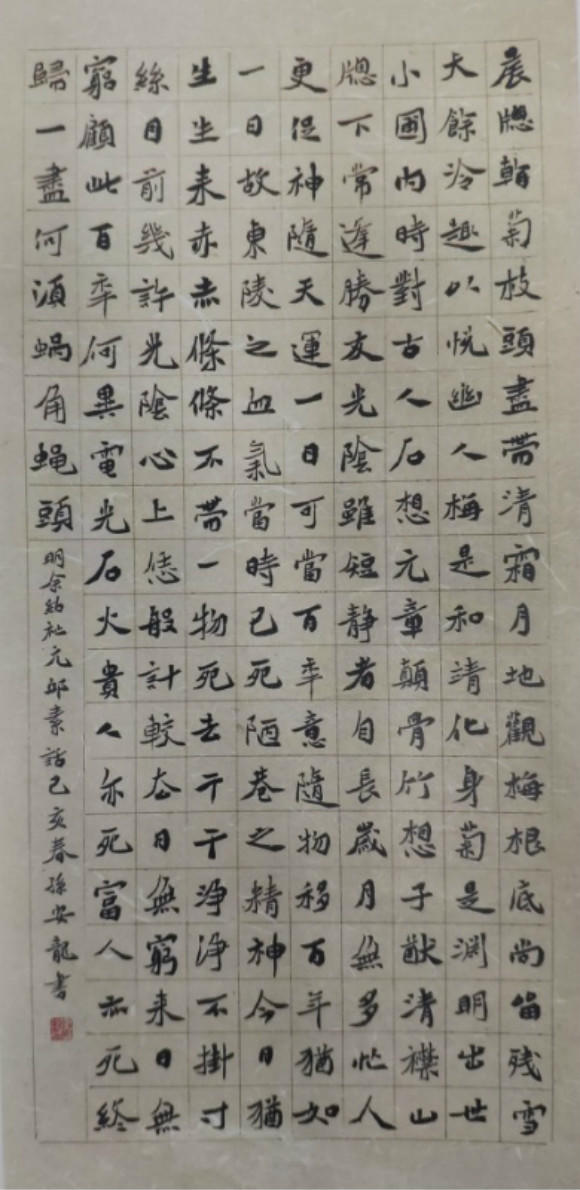 晨牕菊枝頭盡帶清霜月地觀梅根底尚留残雪
大餘冷趣以悦幽人梅是和靖化身菊是渊明出世
小圃内時對古人石想元章顛骨竹想子猷清襟山
牕下常逢勝友光陰雖短静者自長歲月無多忙人
更促神隨天運一日可當百年意隨物移百年猶如
一日故東陵之血氣當時已死陋巷之精神今日猶
生生来赤赤條條不帶一物死去干干浄浄不掛寸
絲目前幾許光陰心上恁般計較去日無窮来日無
窮顧此百年何異電光石火貴人亦死富人亦死終
歸一盡何須蝸角蝇頭
明余紹祉元邱素話己亥春孫安龍書